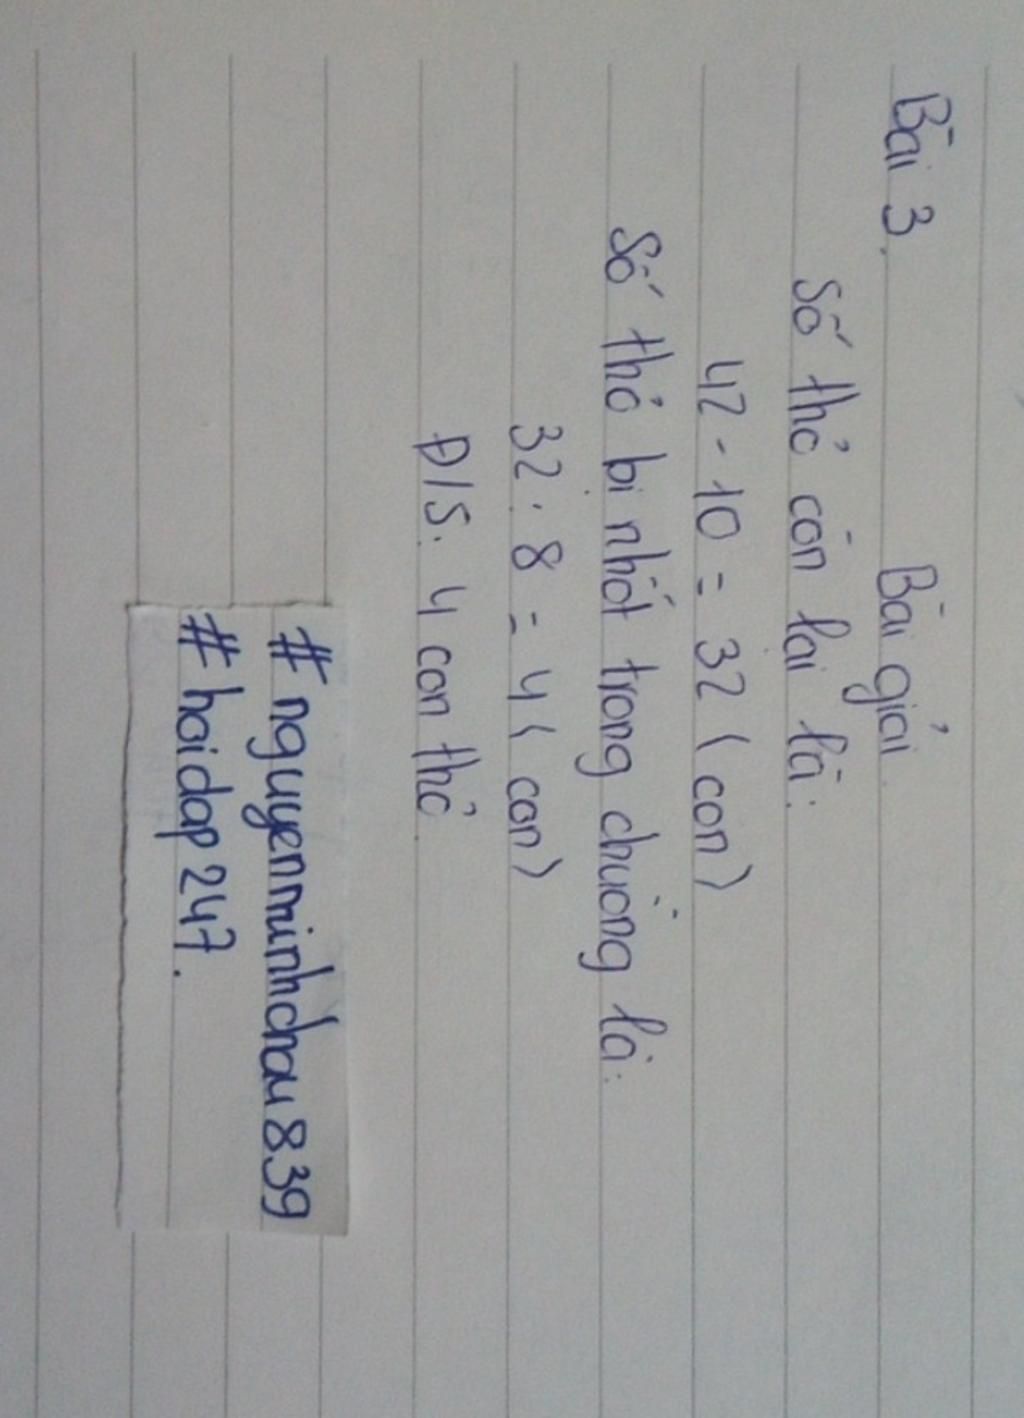 Bài 3.
Bài giải
Số thỏ còn lại là:
42 - 10 = 32 (con)
Số thỏ bị nhốt trong chuồng là:
32 : 8 = 4 (con)
Đ/S: 4 con thỏ.
# nguyenminhchau839
# hoidap247.